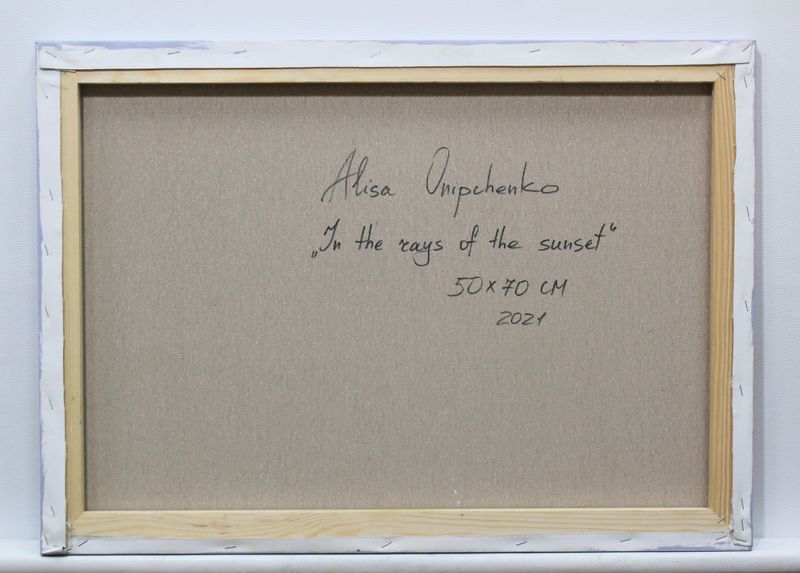 Alisa Onipchenko
„In the rays of the sunset“
50x70 см
2021